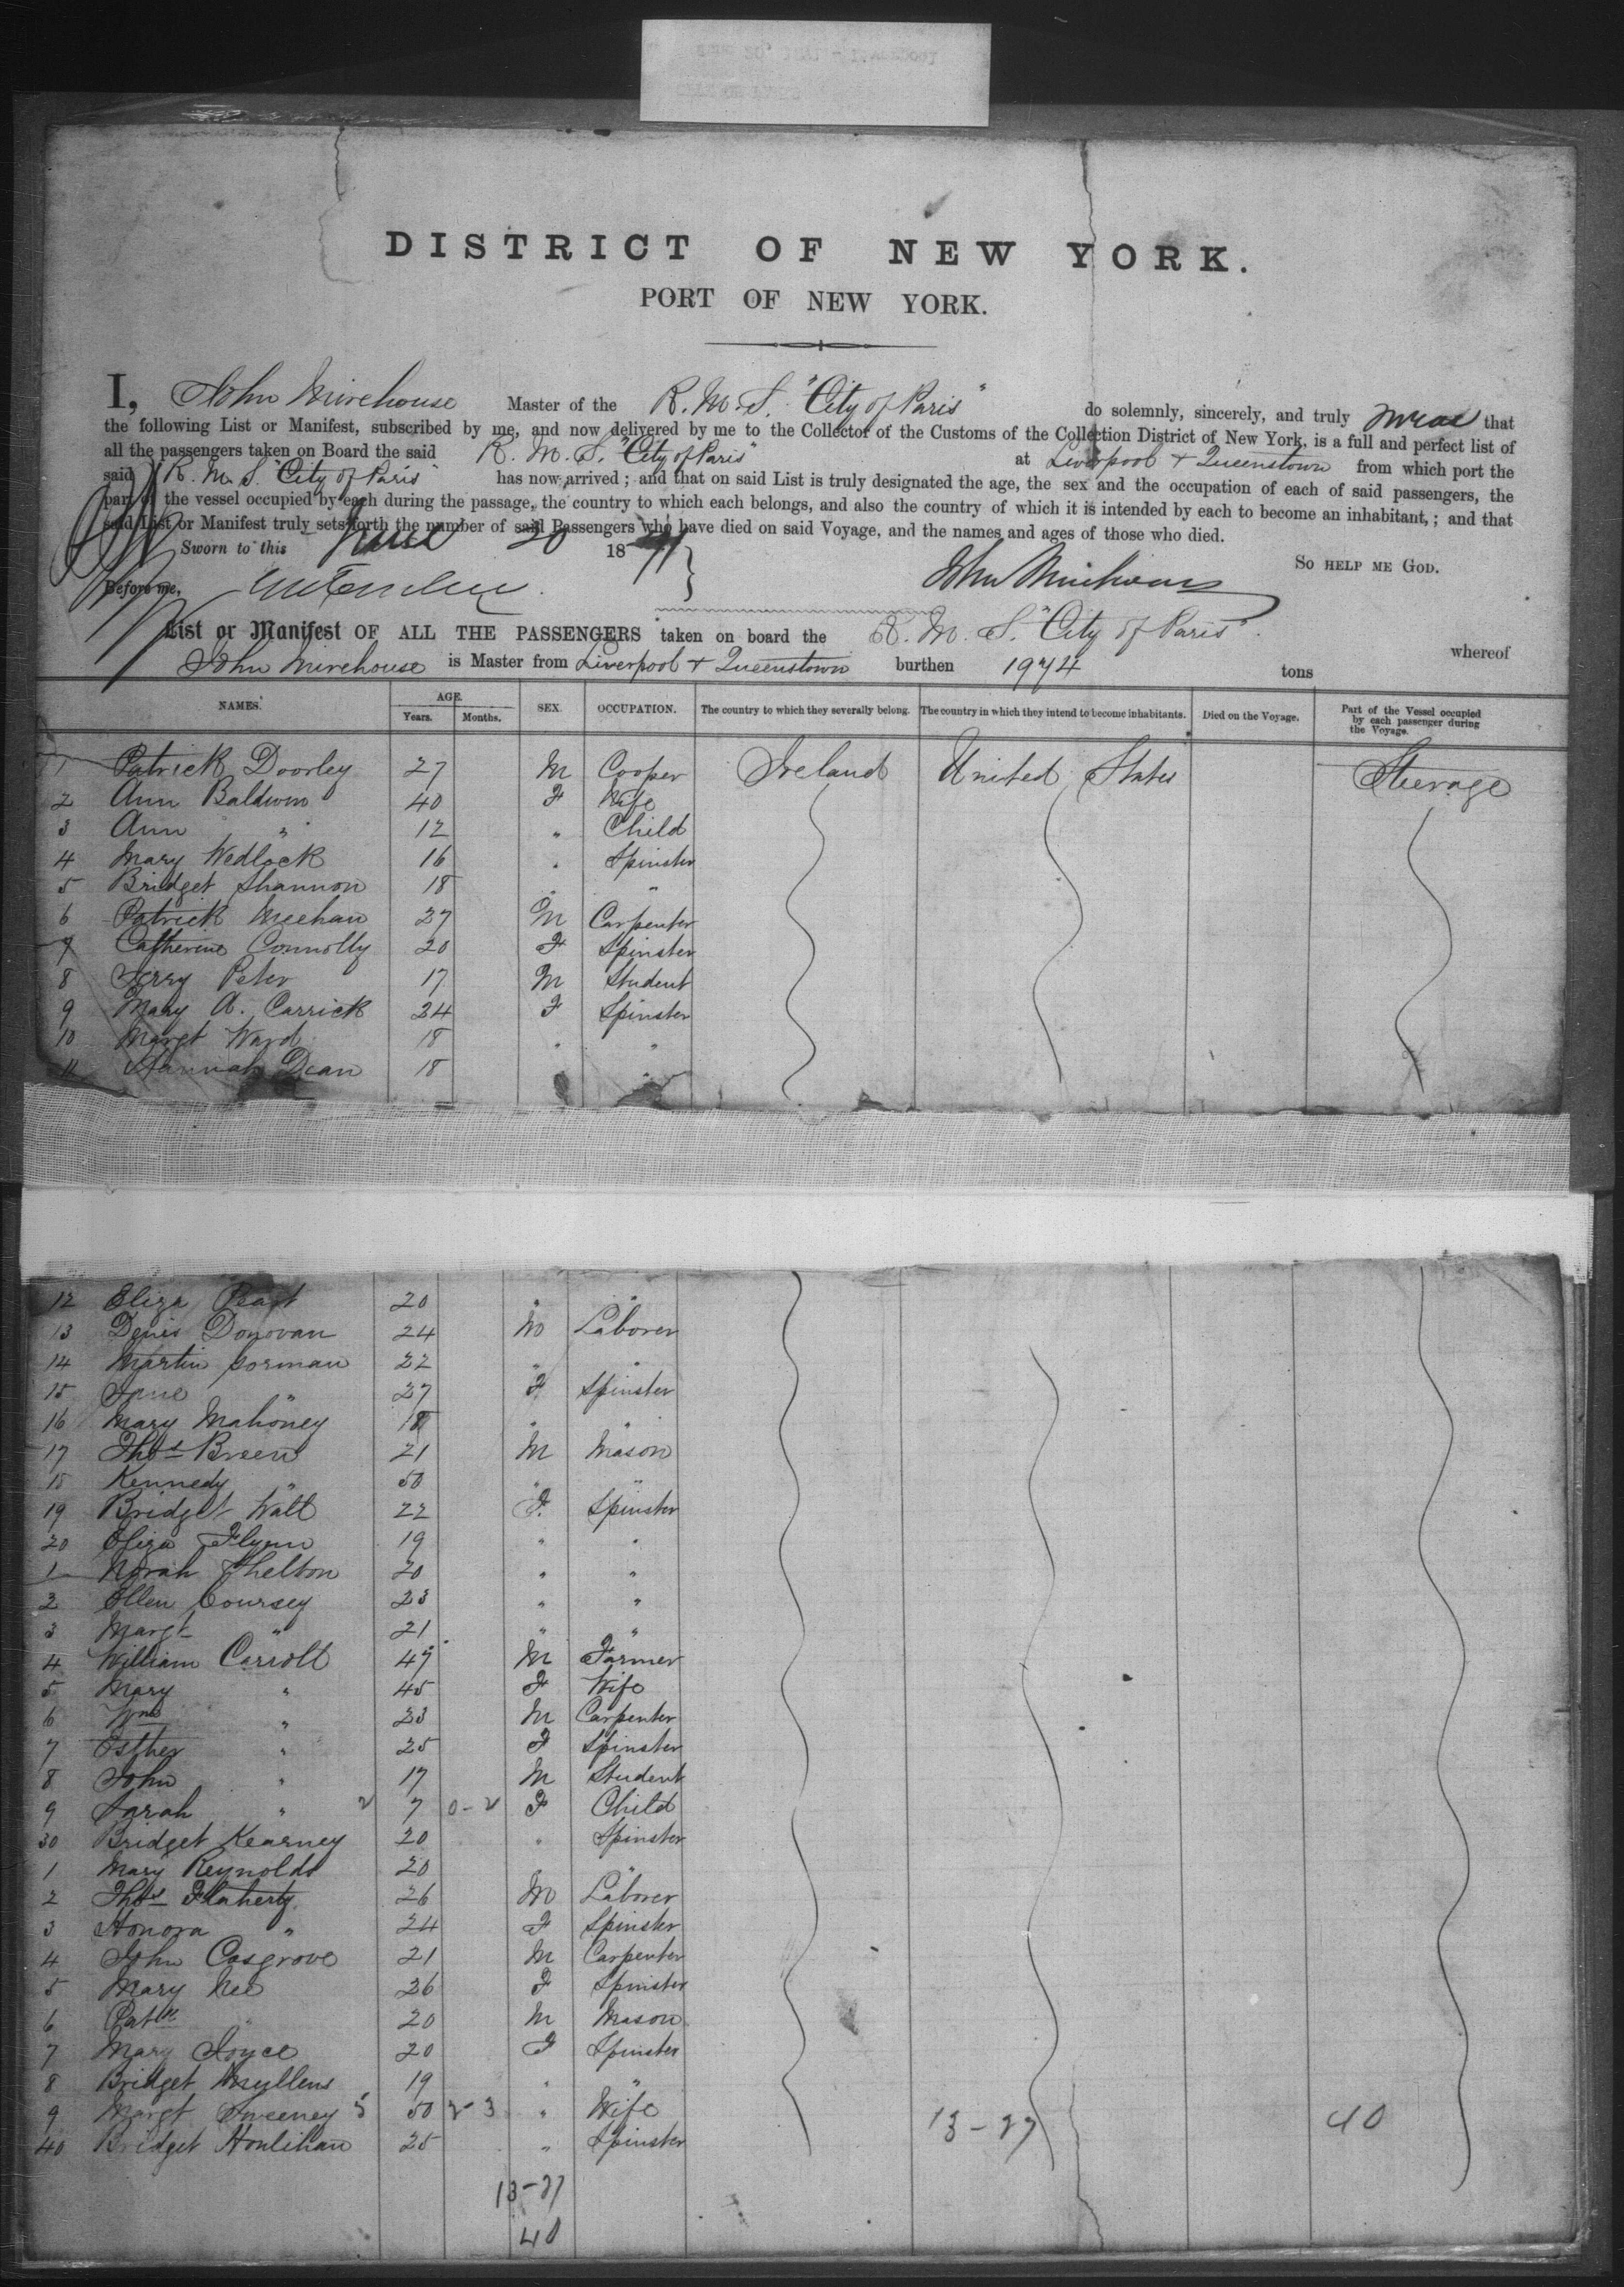 DISTRICT OF NEW YORK.
PORT OF NEW YORK.
I, John Mirehouse Master of the R. M. S. "City of Paris" do solemnly, sincerely, and truly swear that
the following List or Manifest, subscribed by me, and now delivered by me to the Collector of the Customs of the Collection District of New York, is a full and perfect list of
all the passengers taken on Board the said R. M. S. "City of Paris" at Liverpool + Queenstown from which port the
said R. M. S. "City of Paris" has now arrived; and that on said List is truly designated the age, the sex and the occupation of each of said passengers, the
part of the vessel occupied by each during the passage, the country to which each belongs, and also the country of which it is intended by each to become an inhabitant,; and that
said List or Manifest truly sets forth the number of said Passengers who have died on said Voyage, and the names and ages of those who died.
Sworn to this 20 1871
So help me God.
Before me, John Mirehouse
List or Manifest OF ALL THE PASSENGERS taken on board the R. M. S. "City of Paris" whereof
John Mirehouse is Master from Liverpool + Queenstown burthen 1974 tons
NAMES. AGE. Years. Months. SEX. OCCUPATION. The country to which they severally belong. The country in which they intend to become inhabitants. Died on the Voyage. Part of the Vessel occupied by each passenger during the Voyage.
1 Patrick Doorley 27 M Cooper Ireland United States Steerage
2 Ann Baldwin 40 F Wife
3 Ann " 12 " Child
4 Mary Wedlock 16 " Spinster
5 Bridget Shannon 18 " "
6 Patrick Meehan 27 M Carpenter
7 Catherine Connolly 20 F Spinster
8 Jerry Peter 17 M Student
9 Mary A. Carrick 24 F Spinster
10 Margt Ward 18 " "
11 Hannah Dean 18 " "
12 Eliza 20 " "
13 Denis Donovan 24 M Laborer
14 Martin Gorman 22 " "
15 Jane " 27 F Spinster
16 Mary Mahoney 18 " "
17 Thos Breen 21 M Mason
18 Kennedy " 50 " "
19 Bridget Wall 22 F Spinster
20 Eliza Flynn 19 " "
1 Norah Shelton 20 " "
2 Ellen Coursey 23 " "
3 Margt " 21 " "
4 William Carroll 47 M Farmer
5 Mary " 45 F Wife
6 Wm " 23 M Carpenter
7 Esther " 25 F Spinster
8 John " 17 M Student
9 Sarah " 7 F Child
30 Bridget Kearney 20 " Spinster
1 Mary Reynolds 20 "
2 Thos Flaherty 26 M Laborer
3 Honora " 24 F Spinster
4 John Cosgrove 21 M Carpenter
5 Mary Nee 26 F Spinster
6 Patk " 20 M Mason
7 Mary Joyce 20 F Spinster
8 Bridget Mullens 19 " "
9 Margt Sweeney 50 " Wife
40 Bridget Honlihan 25 " Spinster
13-27 40
13-27
40